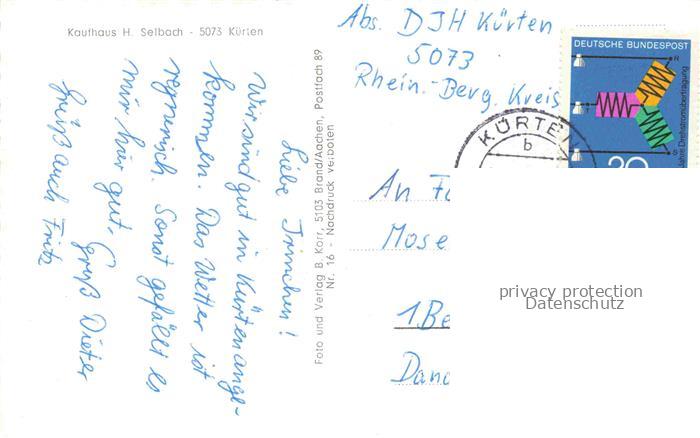 Kaufhaus H. Selbach - 5073 Kürten
Liebe Irmchen!
Wir sind gut in Kürten ange-
kommen. Das Wetter ist
regnerisch. Sonst gefällt es
mir hier gut. Gruß Dieter
Grüß auch Fritz
Foto und Verlag B. Korr, 5103 Brand/Aachen, Postfach 89
Nr. 16 - Nachdruck verboten
Abs. DJH Kürten
5073
Rhein.-Berg. Kreis
DEUTSCHE BUNDESPOST
R
S
Jahre Drehstromübertragung
20
KÜRTE
b
An
Mose
1 Be
privacy protection
Datenschutz